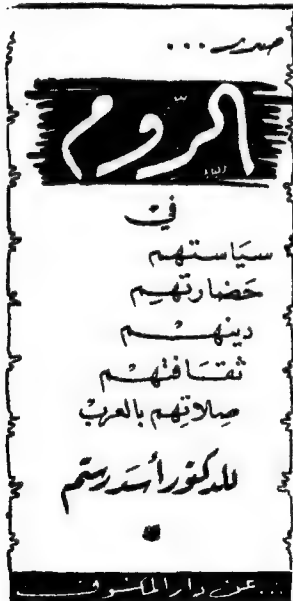 صدر...
الرّوم
في
سياستهم
حَضارتهم
دينهم
ثقافتهم
صِلاتِهم بالعربْ
للدكتور أسد رستم
...عن دار المكشوف